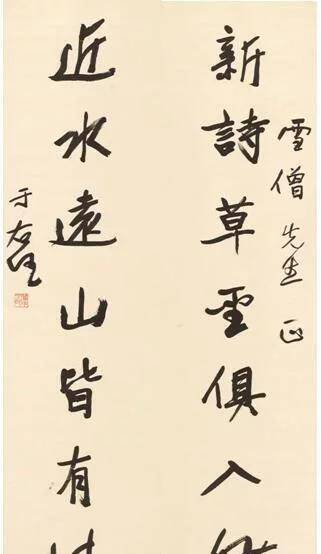 雪僧先生正
新詩草聖俱入
近水遠山皆有
于右任